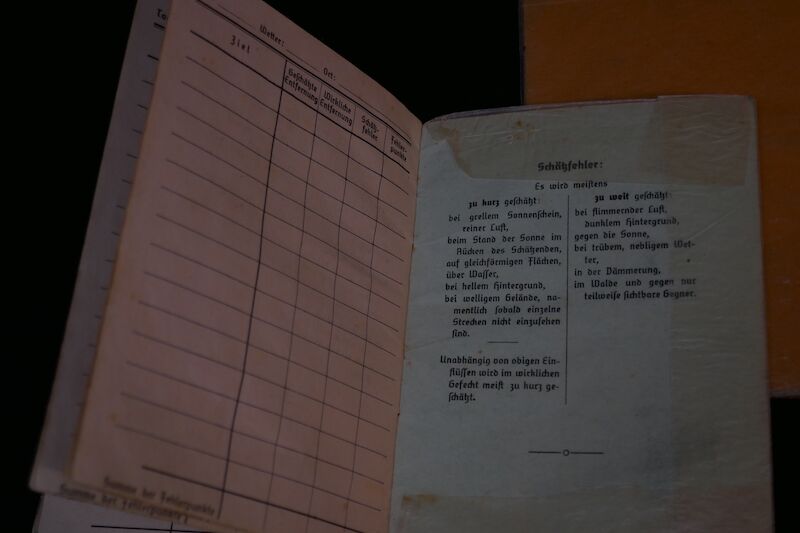 Wetter: Ort:
Ziel
Geschätzte Entfernung
Wirkliche Entfernung
Schätz-
fehler
Fehler-
punkte
Summe der Fehlerpunkte
Summe der Fehlerpunkte
Schätzfehler:
Es wird meistens
zu kurz geschätzt:
bei grellem Sonnenschein,
reiner Luft,
beim Stand der Sonne im
Rücken des Schätzenden,
auf gleichförmigen Flächen,
über Wasser,
bei hellem Hintergrund,
bei welligem Gelände, na-
mentlich sobald einzelne
Strecken nicht einzusehen
sind.
Unabhängig von obigen Ein-
flüssen wird im wirklichen
Gefecht meist zu kurz ge-
schätzt.
zu weit geschätzt:
bei flimmernder Luft,
dunklem Hintergrund,
gegen die Sonne,
bei trübem, nebligem Wet-
ter,
in der Dämmerung,
im Walde und gegen nur
teilweise sichtbare Gegner.